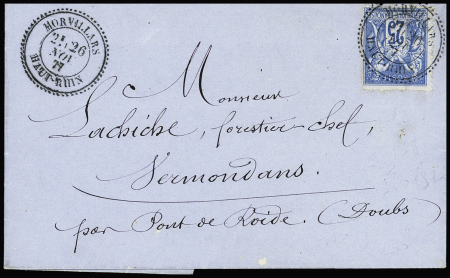 MORVILLARS
26
NOV
77
HAUT-RHIN
25
Monsieur
Lachiche, forestier-chef,
Vermondans
par Pont de Roide. (Doubs)